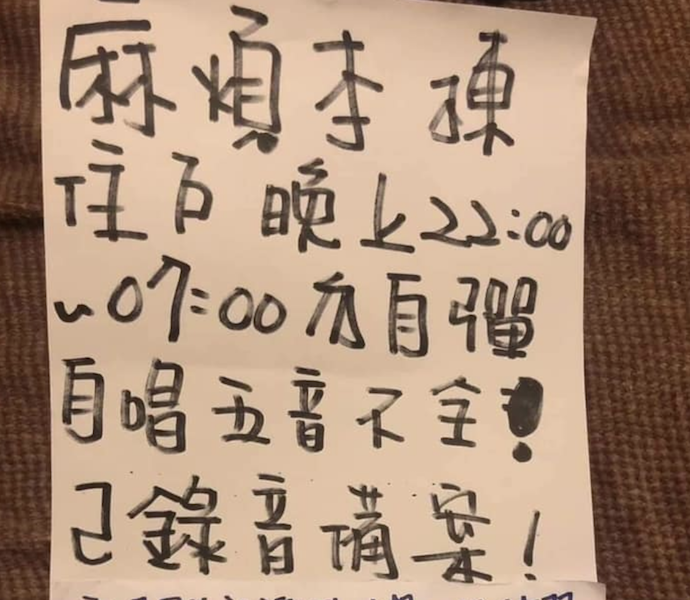 麻煩本棟
住戶晚上22:00
~07:00勿自彈
自唱五音不全!
已錄音備案!